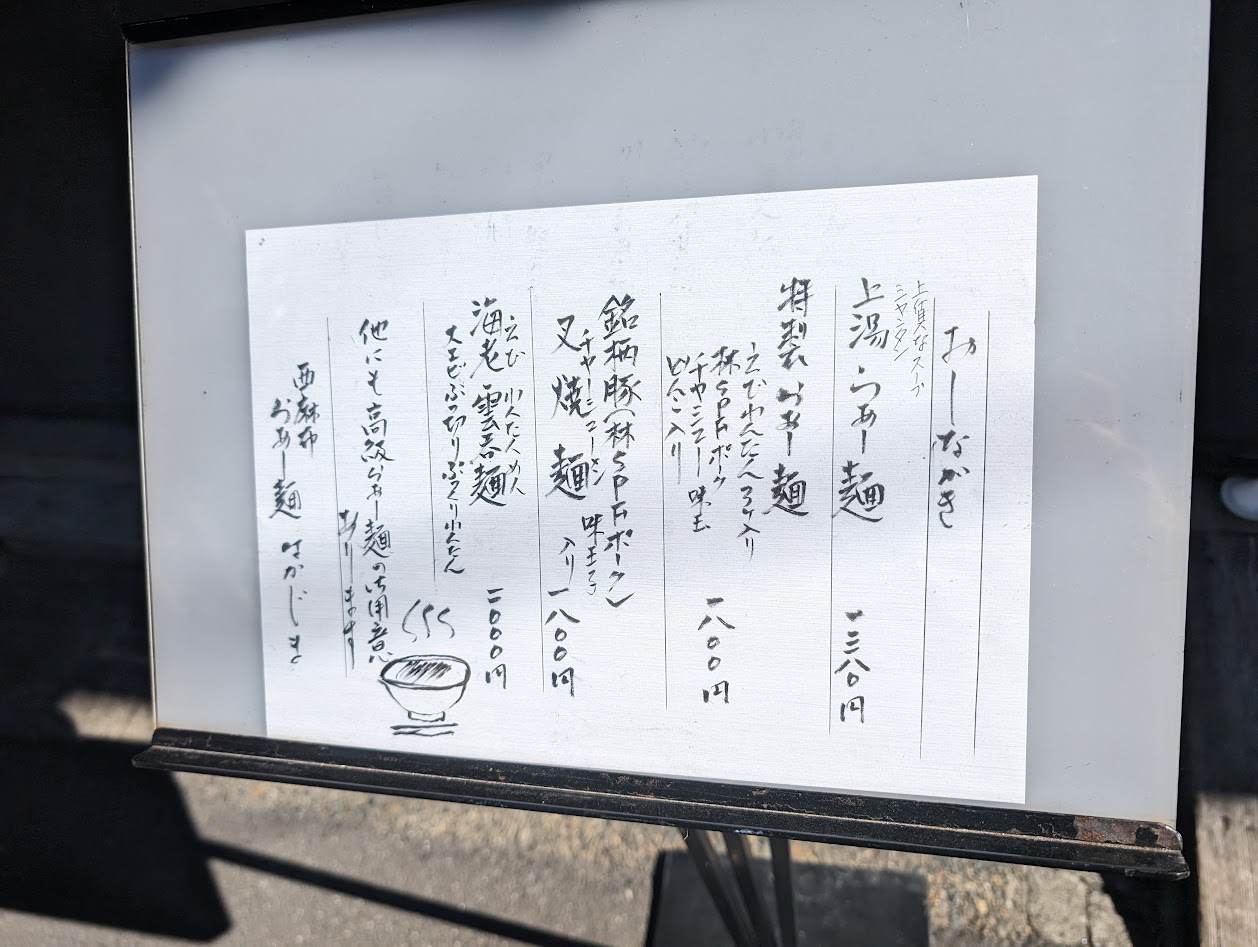 おーしながき
上質なスープ
シャンタン
上湯らぁー麺 一三八〇円
特製らぁー麺 一八〇〇円
えびわんたん3ヶ入り
林SPFポーク
チャーシュー味玉
入り
銘柄豚(林SPFポーク)
チャーシューメン 味玉子
叉焼麺 入り 一八〇〇円
えび わんたんめん
海老雲呑麺 二〇〇〇円
大エビぶつ切りぷっくりわんたん
他にも高級らぁー麺の御用意
あります
西麻布
らぁー麺 はかじま